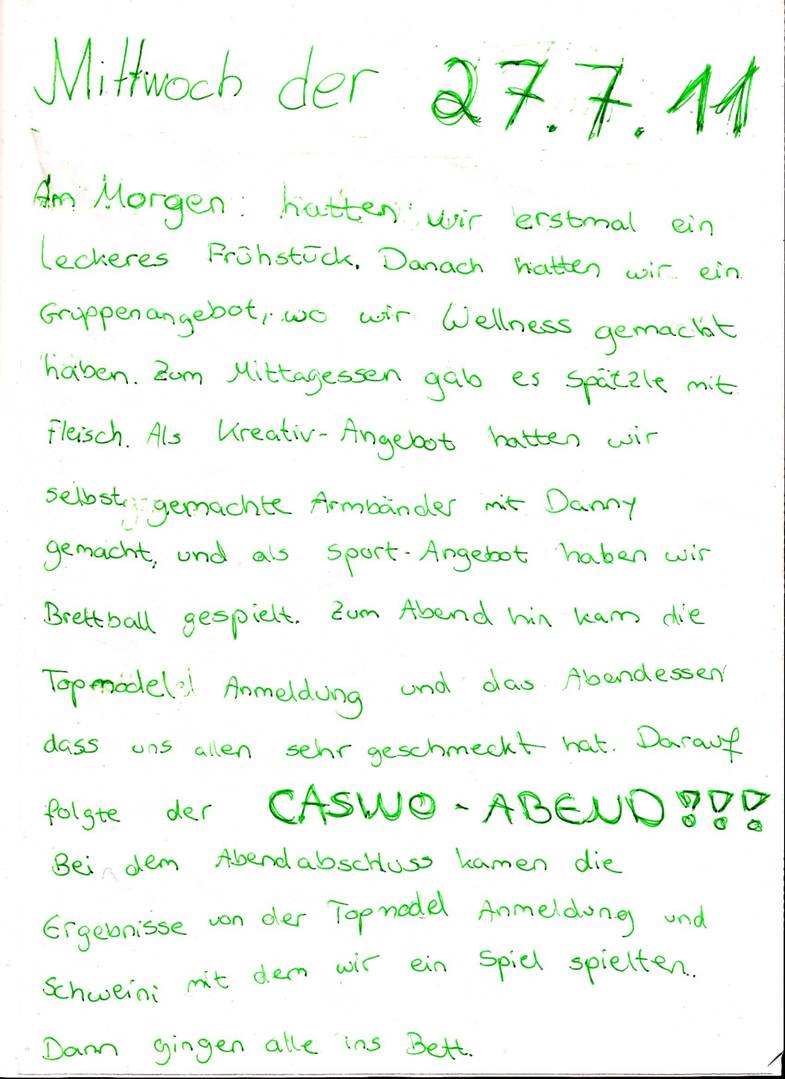 Mittwoch der 27.7.11
Am Morgen: hatten wir erstmal ein
leckeres Frühstück. Danach hatten wir ein
Gruppenangebot, wo wir Wellness gemacht
haben. Zum Mittagessen gab es Spätzle mit
Fleisch. Als Kreativ-Angebot hatten wir
selbst gemachte Armbänder mit Danny
gemacht, und als Sport-Angebot haben wir
Brettball gespielt. Zum Abend hin kam die
Topmodel Anmeldung und das Abendessen
dass uns allen sehr geschmeckt hat. Darauf
folgte der CASWO-ABEND!!!
Bei dem Abendabschluss kamen die
Ergebnisse von der Topmodel Anmeldung und
Schweini mit dem wir ein Spiel spielten.
Dann gingen alle ins Bett.